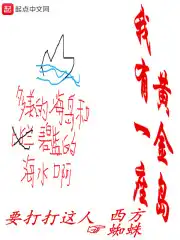 起点中文网
我有一座
黄金岛
多美的海岛和
碧蓝的
海水口阿
要打打这人 西方
☞蜘蛛